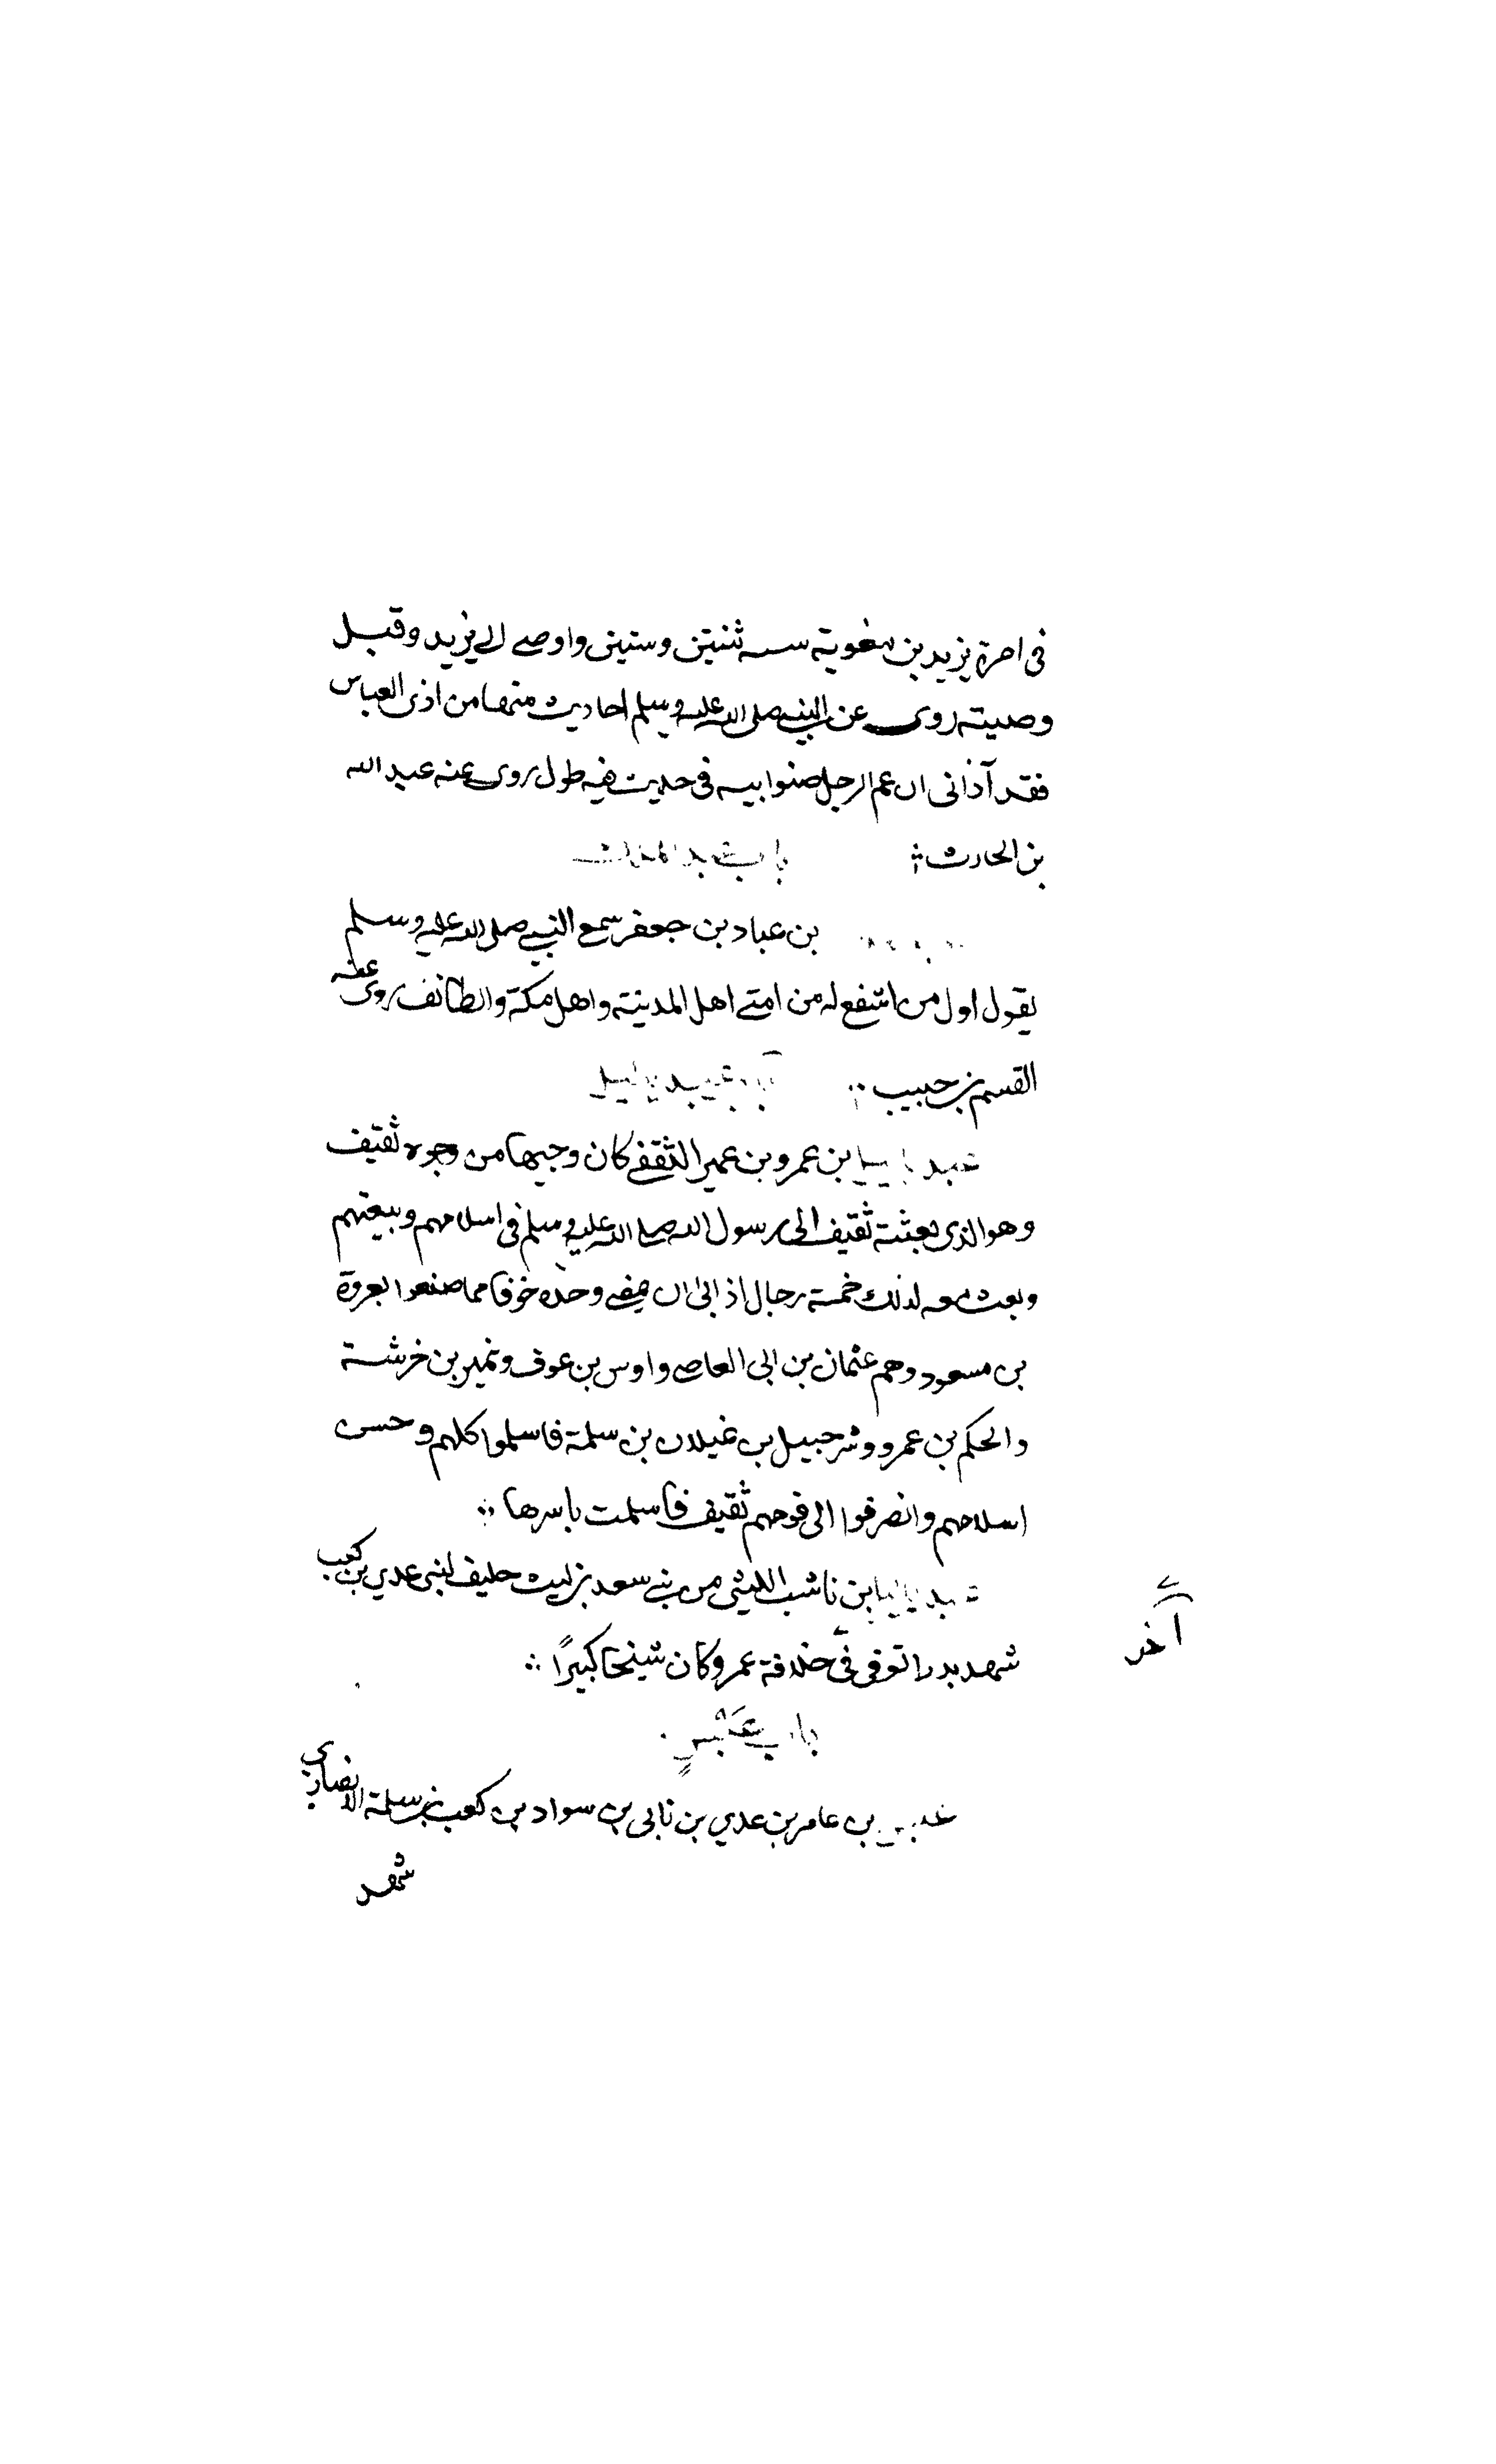 فى امرة يزيد بن معوية سنه ثنتين وستين واوصى الى يزيد وقبل
وصيته روى عن النبي صلى الله عليه وسلم احاديث منها من اذى العباس
فقد آذانى ان عم الرجل صنوابيه فى حديث فيه طول روى عنه عبد الله
بن الحارث
بن عباد بن جعفر سمع النبي صلى الله عليه وسلم
يقول اول من اشفع له من امتى اهل المدينة واهل مكة والطائف روى عنه
القسم بن حبيب باب عبد ياليل
عبد ياليل بن عمرو بن عمير الثقفى كان وجيها من وجوه ثقيف
وهو الذى بعثته ثقيف الى رسول الله صلى الله عليه وسلم فى اسلامهم وبيعتهم
وبعث معه لذلك خمسة رجال اذ ابى ان يمضى وحده خوفا مما صنعوا بعروة
بن مسعود وهم عثمان بن ابى العاص واوس بن عوف ونمير بن خرشة
والحكم بن عمرو وشرحبيل بن غيلان بن سلمة فاسلموا كلهم وحسن
اسلامهم وانصرفوا الى قومهم ثقيف فاسلمت باسرها
عبد ياليل بن ناشب الليثى من بنى سعد بن ليث حليف لبنى عدي بن كعب
آخر
شهد بدرا توفى فى خلافة عمر وكان شيخا كبيرًا
باب عبس
عبس بن عامر بن عدي بن نابى بن سواد بن كعب بن سلمة الانصاري
شهد